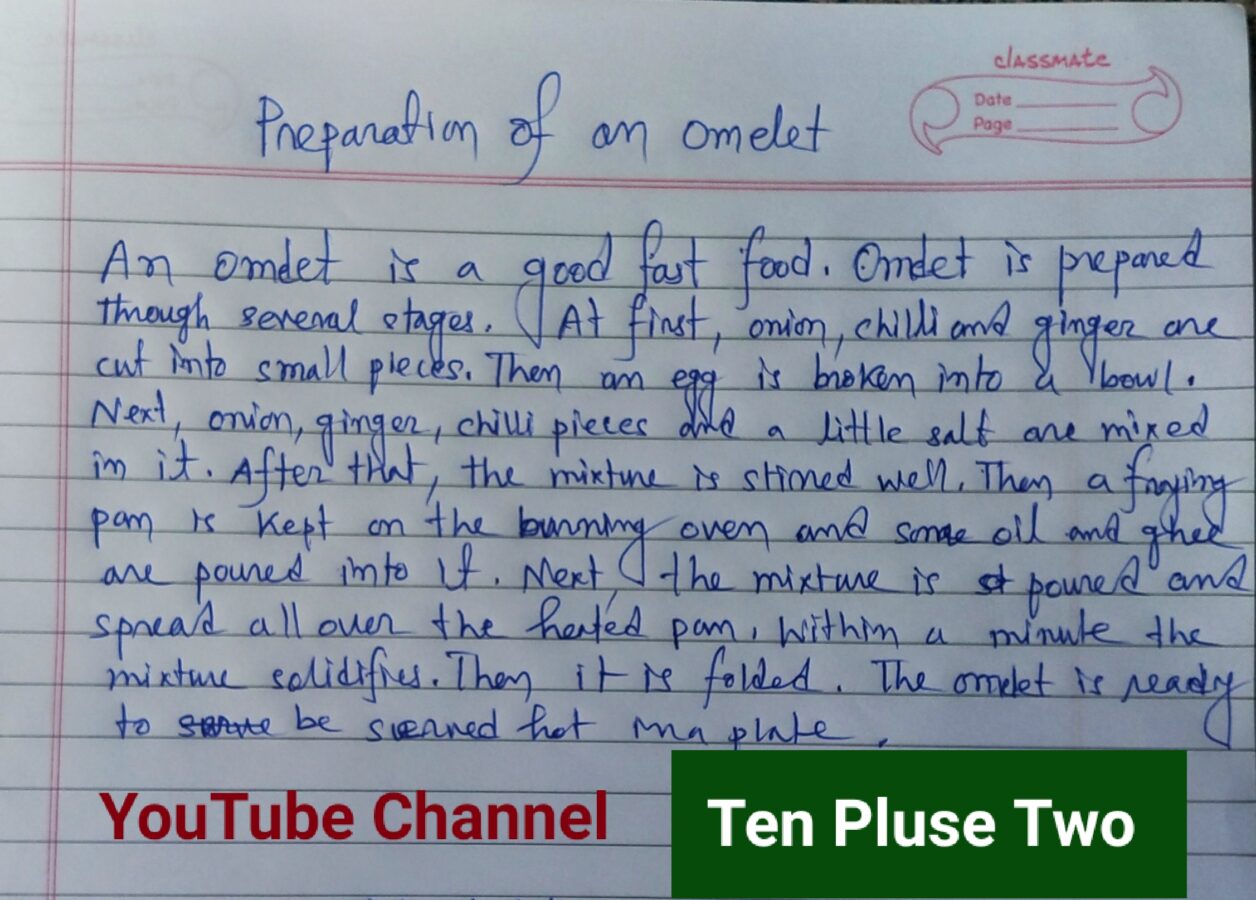 Preparation of an omelet
classmate
Date
Page
An omelet is a good fast food. Omelet is prepared
through several stages. At first, onion, chilli and ginger are
cut into small pieces. Then an egg is broken into a bowl.
Next, onion, ginger, chilli pieces and a little salt are mixed
in it. After that, the mixture is stirred well. Then a frying
pan is kept on the burning oven and some oil and ghee
are poured into it. Next, the mixture is poured and
spread all over the heated pan. Within a minute the
mixture solidifies. Then it is folded. The omelet is ready
to be served hot in a plate.
YouTube Channel
Ten Pluse Two